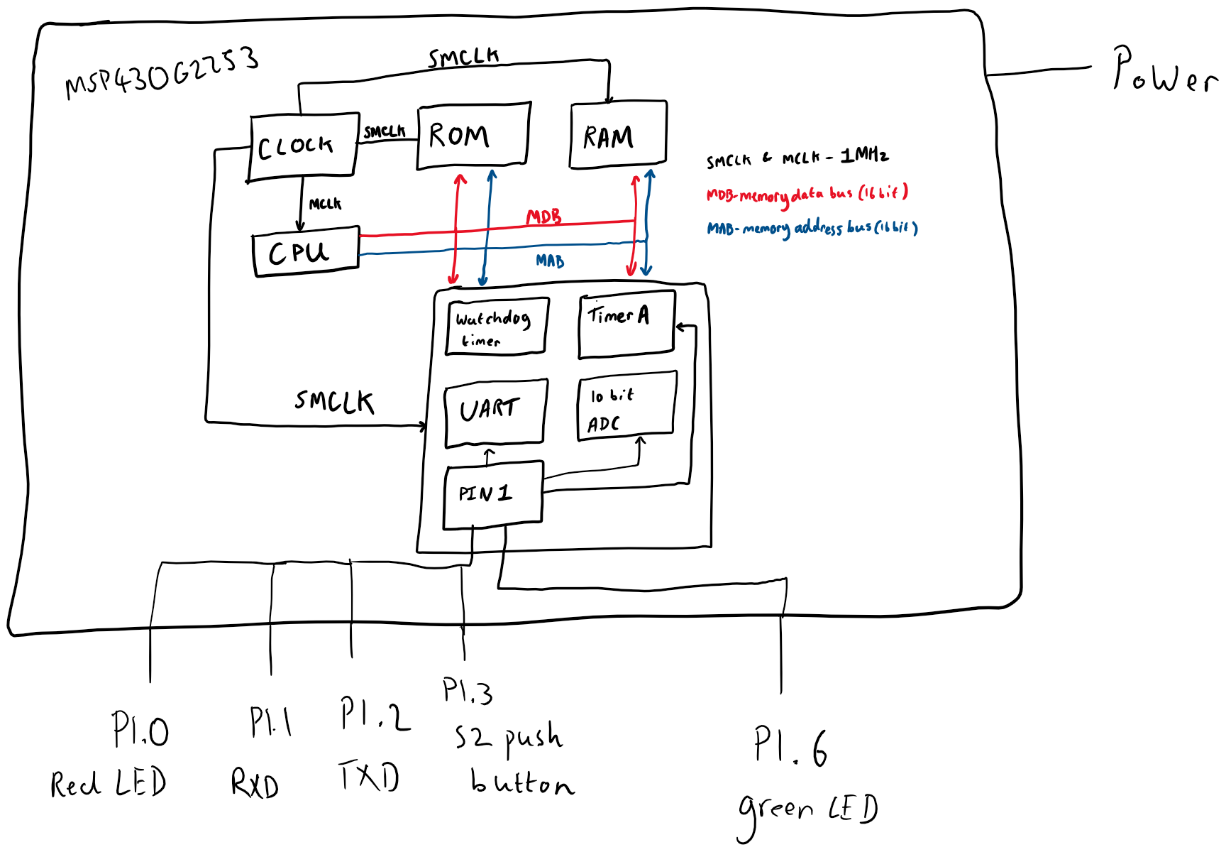 MSP430G2253
SMCLK
Power
CLOCK
SMCLK
ROM
RAM
SMCLK & MCLK - 1MHz
MCLK
MDB-memory data bus (16 bit)
MDB
MAB-memory address bus (16 bit)
CPU
MAB
Watchdog
timer
Timer A
SMCLK
UART
10 bit
ADC
PIN 1
P1.0
Red LED
P1.1
RXD
P1.2
TXD
P1.3
S2 push
button
P1.6
green LED